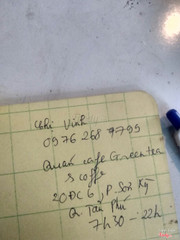 Chị Vinh
0976 268 9795
Quán cafe Green tea
s coffe
20ĐC6, P. Sơn Kỳ
Q Tân Phú
7h30 - 22h